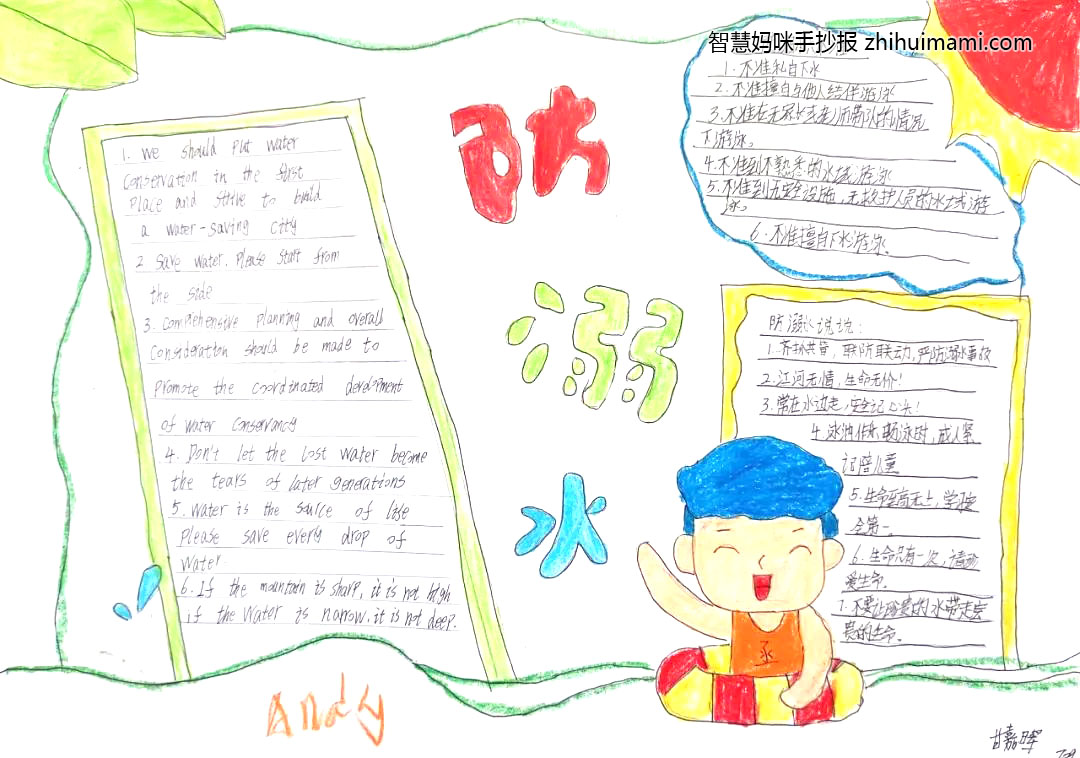 智慧妈咪手抄报 zhihuimami.com
1. 不准私自下水
2. 不准擅自与他人结伴游泳
3. 不准在无家长或老师带队的情况
下游泳。
4. 不准到不熟悉的水域游泳
5. 不准到无安全设施、无救护人员的水域游
泳。
6. 不准擅自下水游泳。
防
溺
水
1. we should put water
conservation in the first
place and strive to build
a water-saving city
2 save water. please start from
the side
3. comprehensive planning and overall
consideration should be made to
promote the coordinated development
of water conservancy
4. Don't let the lost water become
the tears of later generations
5. water is the source of life
please save every drop of
water.
6. If the mountain is sharp, it is not high
if the water is narrow, it is not deep.
防溺水说说:
1. 齐抓共管,联防联动,严防溺水事故
2. 江河无情,生命无价!
3. 常在水边走,安全记心头!
4. 泳池作乐畅泳时,成人紧
记陪儿童
5. 生命至高无上,
全第一。
6. 生命只有一次,请珍
爱生命。
7. 不要让的水带走宝
贵的生命。
Andy
甘嘉晖